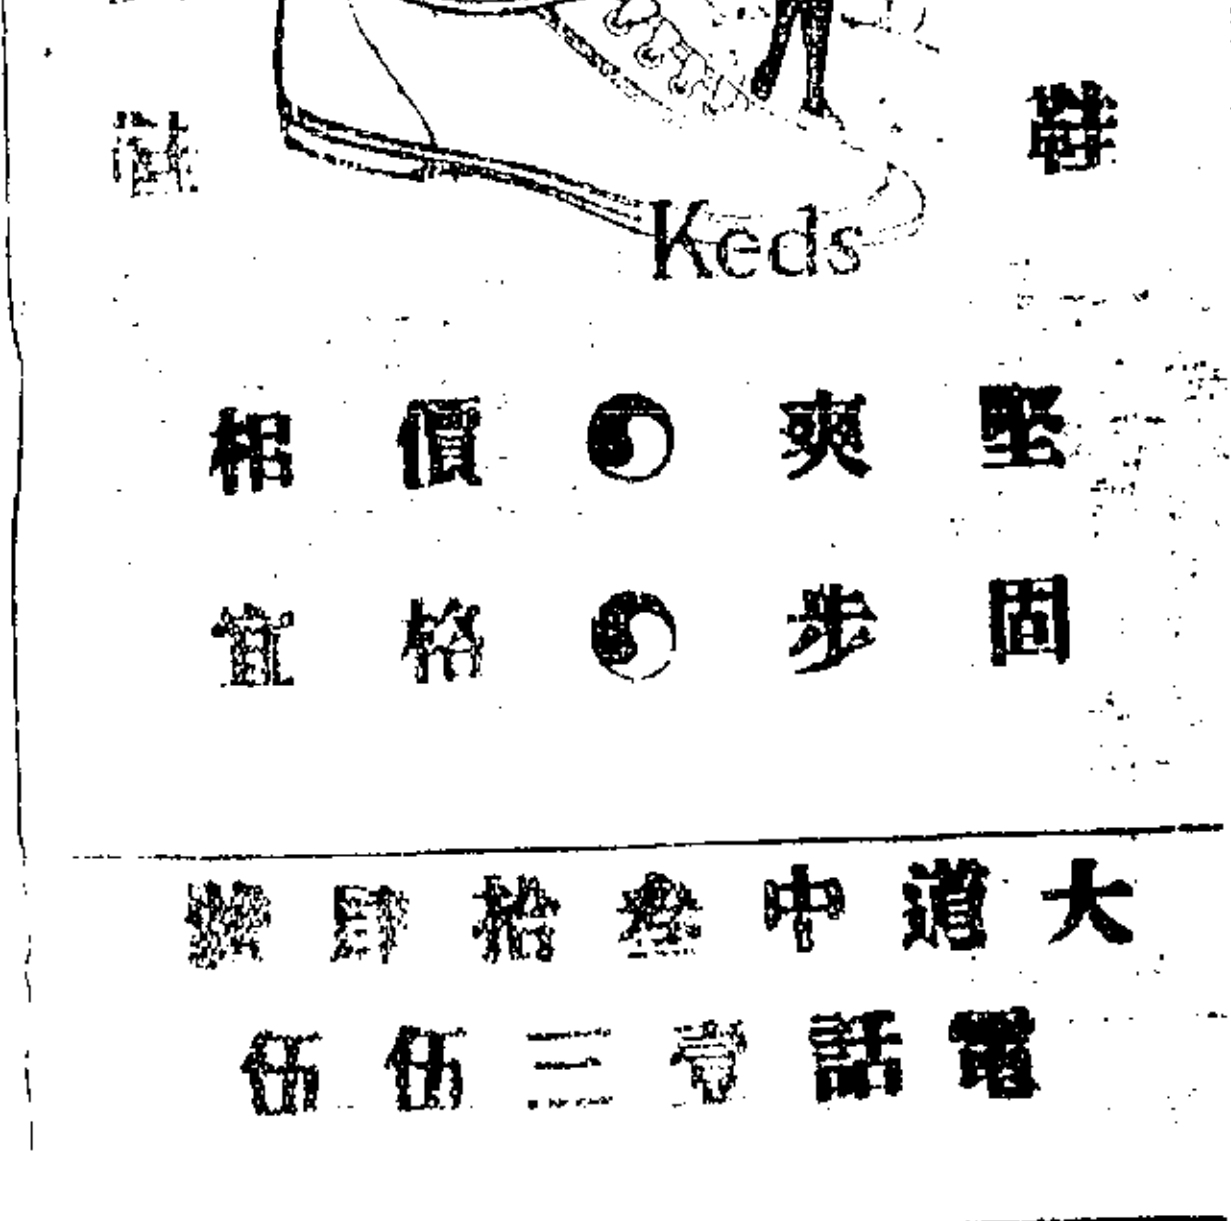 Keds
堅固
爽步
價格
相宜
大道中叁拾肆號
電話壹三伍伍